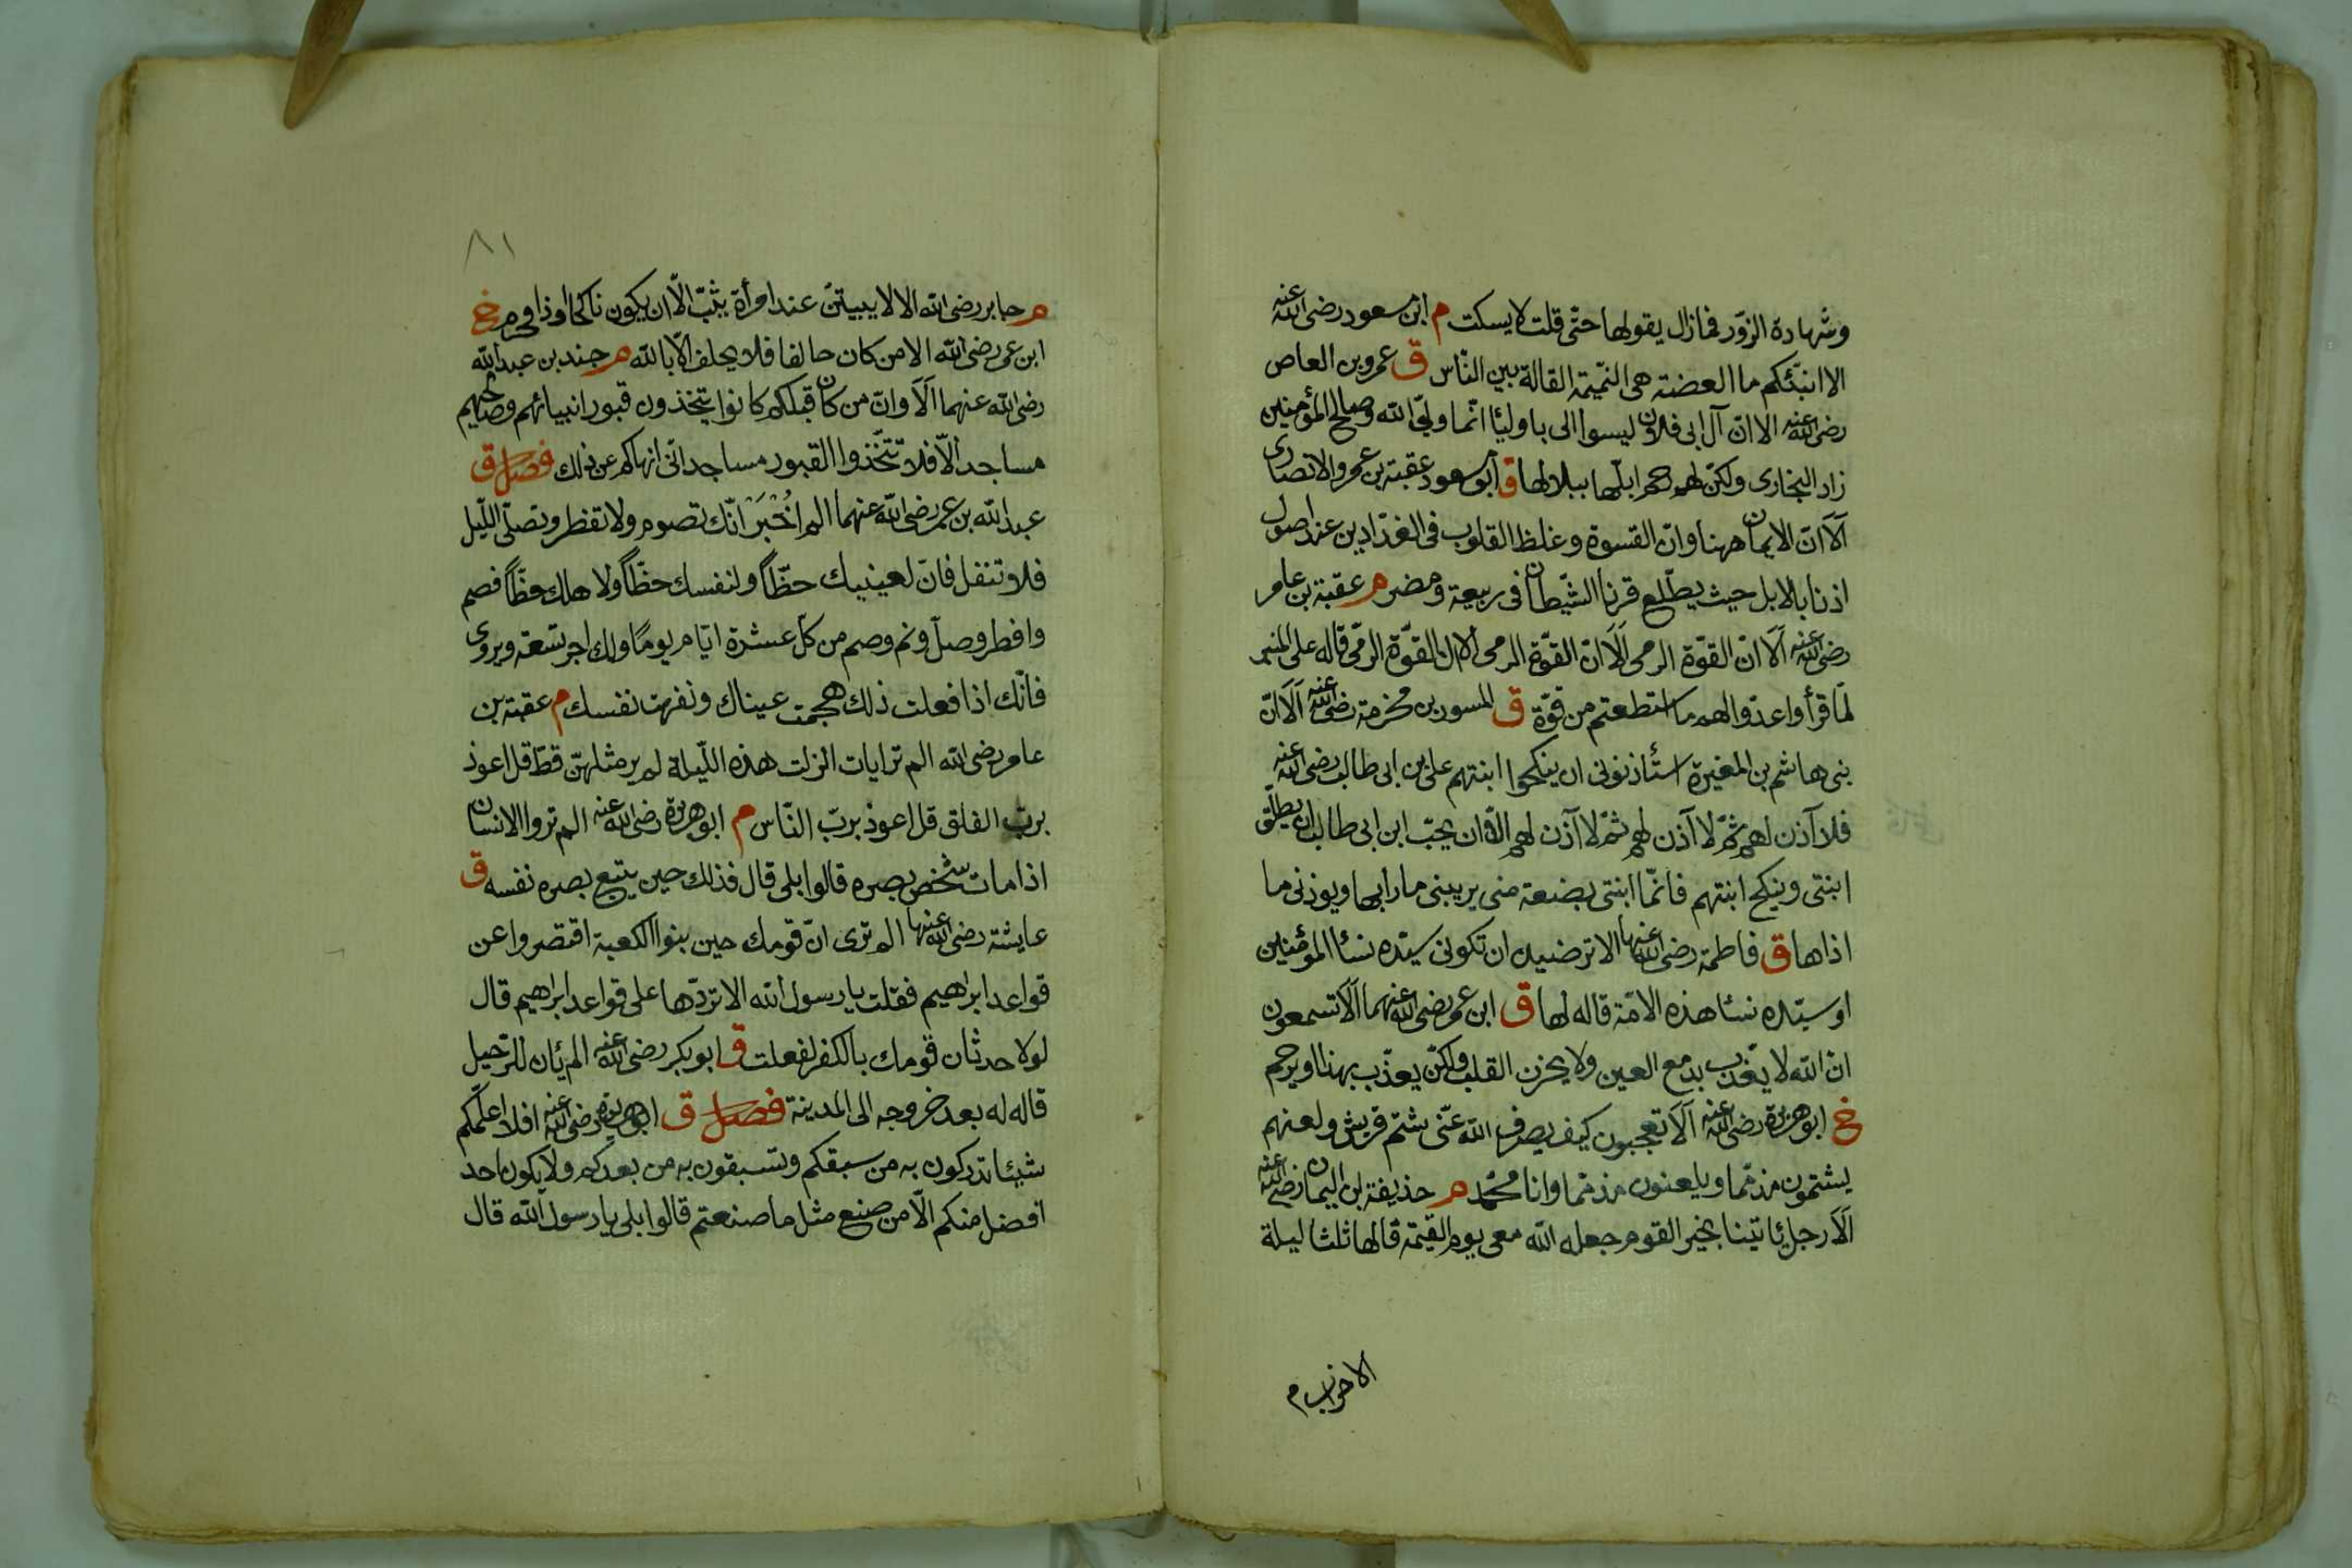 وشهادة الزّور فما زال يقولها حتّى قلت لا يسكت م ابن مسعود رضى الله عنه
الا انبّئكم ما العضته هى النّميمة القالة بين النّاس ق عمرو بن العاص
رضى الله عنه الا انّ آل ابى فلان ليسوا الى باوليئا انّما وليّى الله وصالح المؤمنين
زاد البخارى ولكن لهم رحم ابلّها ببلالها ق ابو مسعود عقبة بن عمرو الانصارى
اَلَا انّ الايمان ههنا وانّ القسوة وغلظ القلوب فى الفدّادين عند اصول
اذناب الابل حيث يطّلع قرنا الشّيطان فى ربيعة ومضر م عقبة بن عامر
رضى الله عنه اَلَا انّ القوّة الرمى اَلَا انّ القوّة الرمى الا ان القوّة الرمى قاله على المنبر
لمّا قرأ واعدّوا لهم ما استطعتم من قوّة ق المسور بن مخرمة رضى الله عنه اَلَا انّ
بنى هاشم بن المغيرة استأذنونى ان ينكحوا ابنتهم على بن ابى طالب رضى الله عنه
فلا آذن لهم ثمّ لا آذن لهم ثمّ لا آذن لهم الّا ان يحبّ ابن ابى طالب ان يطلّق
ابنتى وينكح ابنتهم فانّما ابنتى بضعة منى يريبنى ما رابها ويوذنى ما
اذاها ق فاطمة رضى الله عنها الا ترضين ان تكونى سيّده نسئا المؤمنين
او سيّده نسئا هذه الامّة قاله لها ق ابن عمر رضى الله عنهما اَلَا تسمعون
انّ الله لا يعذّب بدمع العين ولا بحزن القلب ولكن يعذّب بهذا او يرحم
خ ابو هريرة رضى الله عنه اَلَا تعجبون كيف يصرف الله عنّى شتم قريش ولعنهم
يشتمون مذمّما ويلعنون مذمّما وانا محمّد م حذيفة بن اليمان رضى الله عنه
اَلَا رجل يئاتينا بخبر القوم جعله الله معى يوم القيمة قالها ثلثا ليلة
الاحزاب م
٨١
م جابر رضى الله الا لا يبيتنّ عند امرأة ثيّب الّا ان يكون ناكحا او ذا محرم خ
ابن عمر رضى الله الا من كان حالفا فلا يحلف الّا بالله م جندب بن عبدالله
رضى الله عنهما اَلَا وانّ من كان قبلكم كانوا يتخذون قبور انبيائهم وصالحيهم
مساجد الّا فلا تتّخذوا القبور مساجد انّى انهاكم عن ذلك فصل ق
عبد الله بن عمر رضى الله عنهما الم اُخْبَرْ انّك تصوم ولا تفطر وتصلّى اللّيل
فلا تنفل فانّ لعينيك حظّاً ولنفسك حظّاً ولاهلك حظّاً فصم
وافطر وصلّ ونم وصم من كلّ عشرة ايّام يومًا ولك اجر تسعة ويروى
فانّك اذا فعلت ذلك هجمت عيناك ونفهت نفسك م عقبة بن
عامر رضى الله الم تر ايات انزلت هذه اللّيلة لم ير مثلهنّ قطّ قل اعوذ
بربّ الفلق قل اعوذ بربّ النّاس م ابو هريرة رضى الله عنه الم تروا الانسان
اذا مات شخص بصره قالوا بلى قال فذلك حين يتبع بصره نفسه ق
عايشة رضى الله عنها الم ترى انّ قومك حين بنوا الكعبة اقتصروا عن
قواعد ابراهيم فقلت يا رسول الله الا تردّها على قواعد ابراهيم قال
لولا حدثان قومك بالكفر لفعلت ق ابو بكر رضى الله عنه الم يئان للرّحيل
قاله له بعد خروجه الى المدينة فصل ق ابو هريرة رضى الله عنه افلا اعلّمكم
شيئا تدركون به من سبقكم وتسبقون به من بعدكم ولا يكون احد
افضل منكم الّا من صنع مثل ما صنعتم قالوا بلى يا رسول الله قال